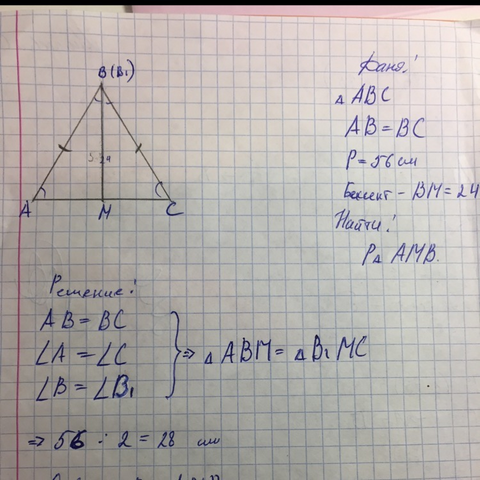 B(B₁)
24
A
M
C
Дано!
△ ABC
AB = BC
P = 56 см
BM = 24
Найти!
P△ AMB.
Решение!
AB = BC
∠A = ∠C
∠B = ∠B₁
⇒ △ ABM = △ B₁MC
⇒ 56 : 2 = 28 см